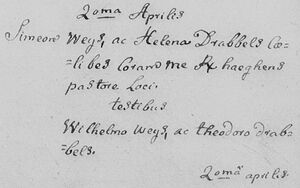 20ma Aprilis
Simeon Weys, ac Helena Drabbels Cœ-
libes Coram me Rx haeghens
pastore Loci.
testibus
Wilhelmo Weys, ac theodoro drab-
bels.
20ma aprilis